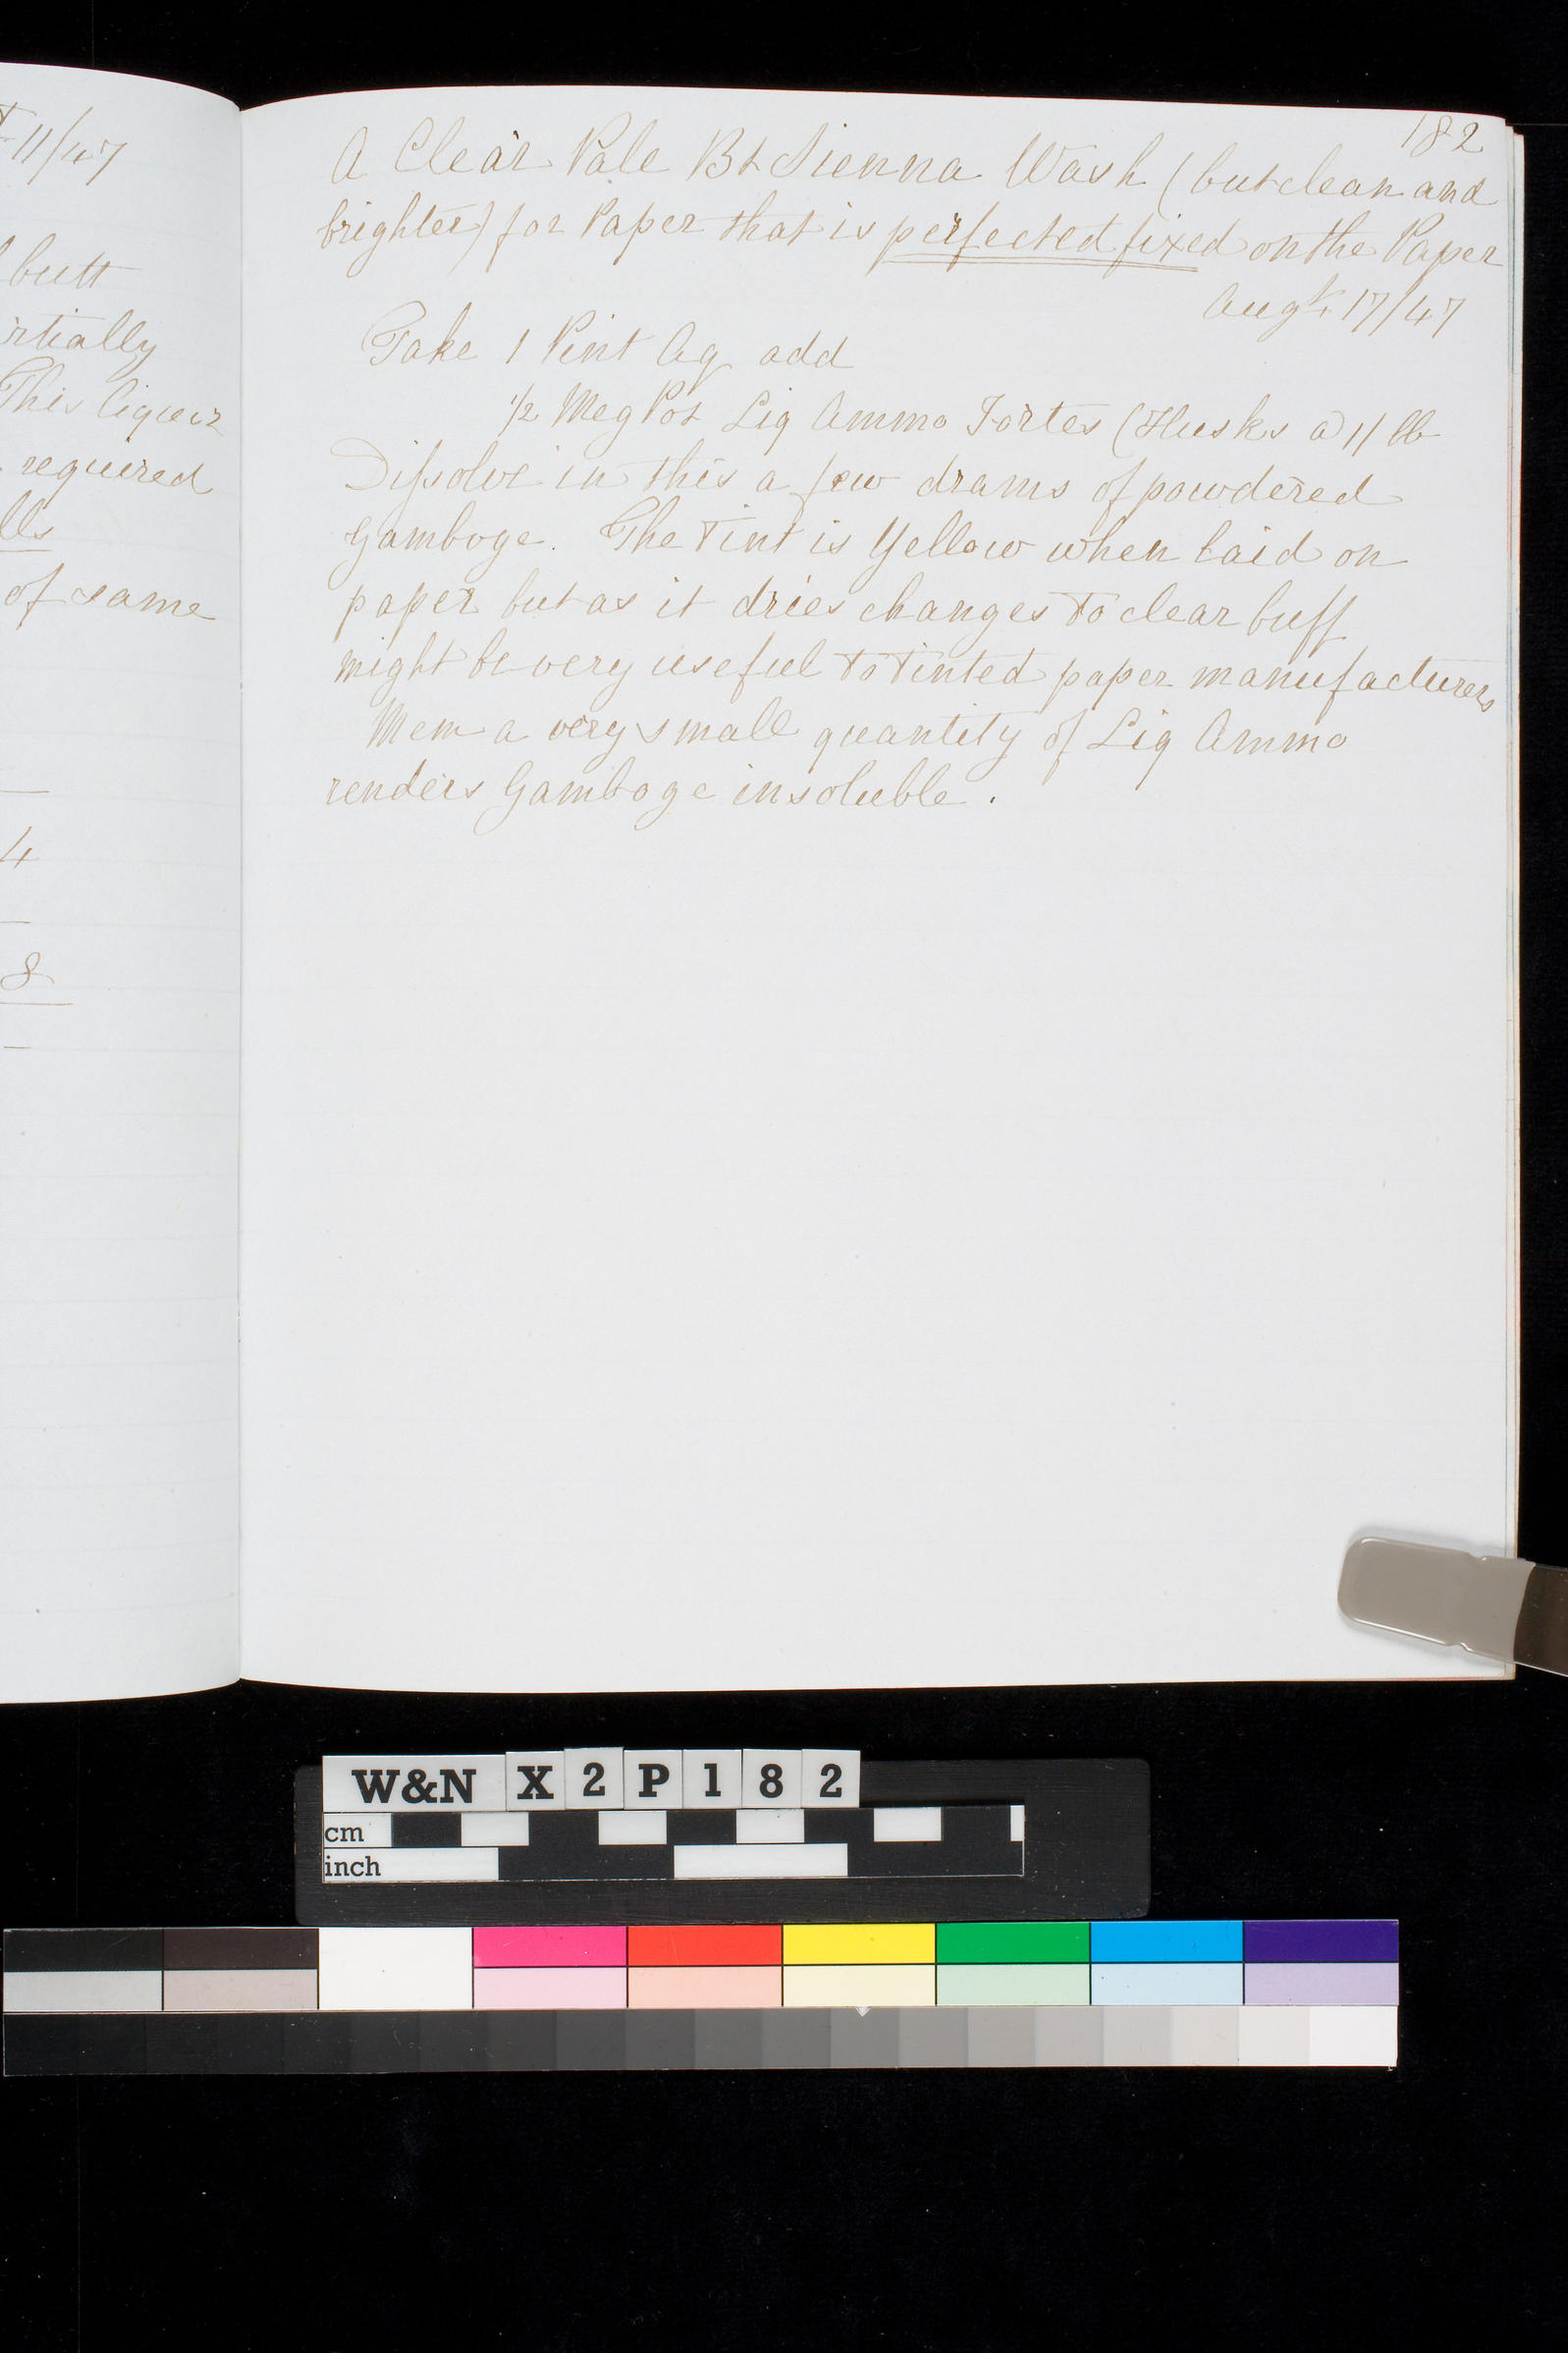 T 11/47
butt
rtially
This liquor
required
lls
of same
4
8
182
A Clear Pale Bt Sienna Wash (but clean and
brighter) for Paper that is perfected fixed on the Paper
Augt 17/47
Take 1 Pint Aq add
1/2 Meg Pot Liq Ammo Fortes (Husks a) 1/ lb
Dissolve in this a few drams of powdered
Gamboge. The Tint is Yellow when laid on
paper but as it dries changes to clear buff
might be very useful to Tinted paper manufacturers
Mem a very small quantity of Liq Ammo
renders Gamboge insoluble.
W&N X2P182
cm
inch